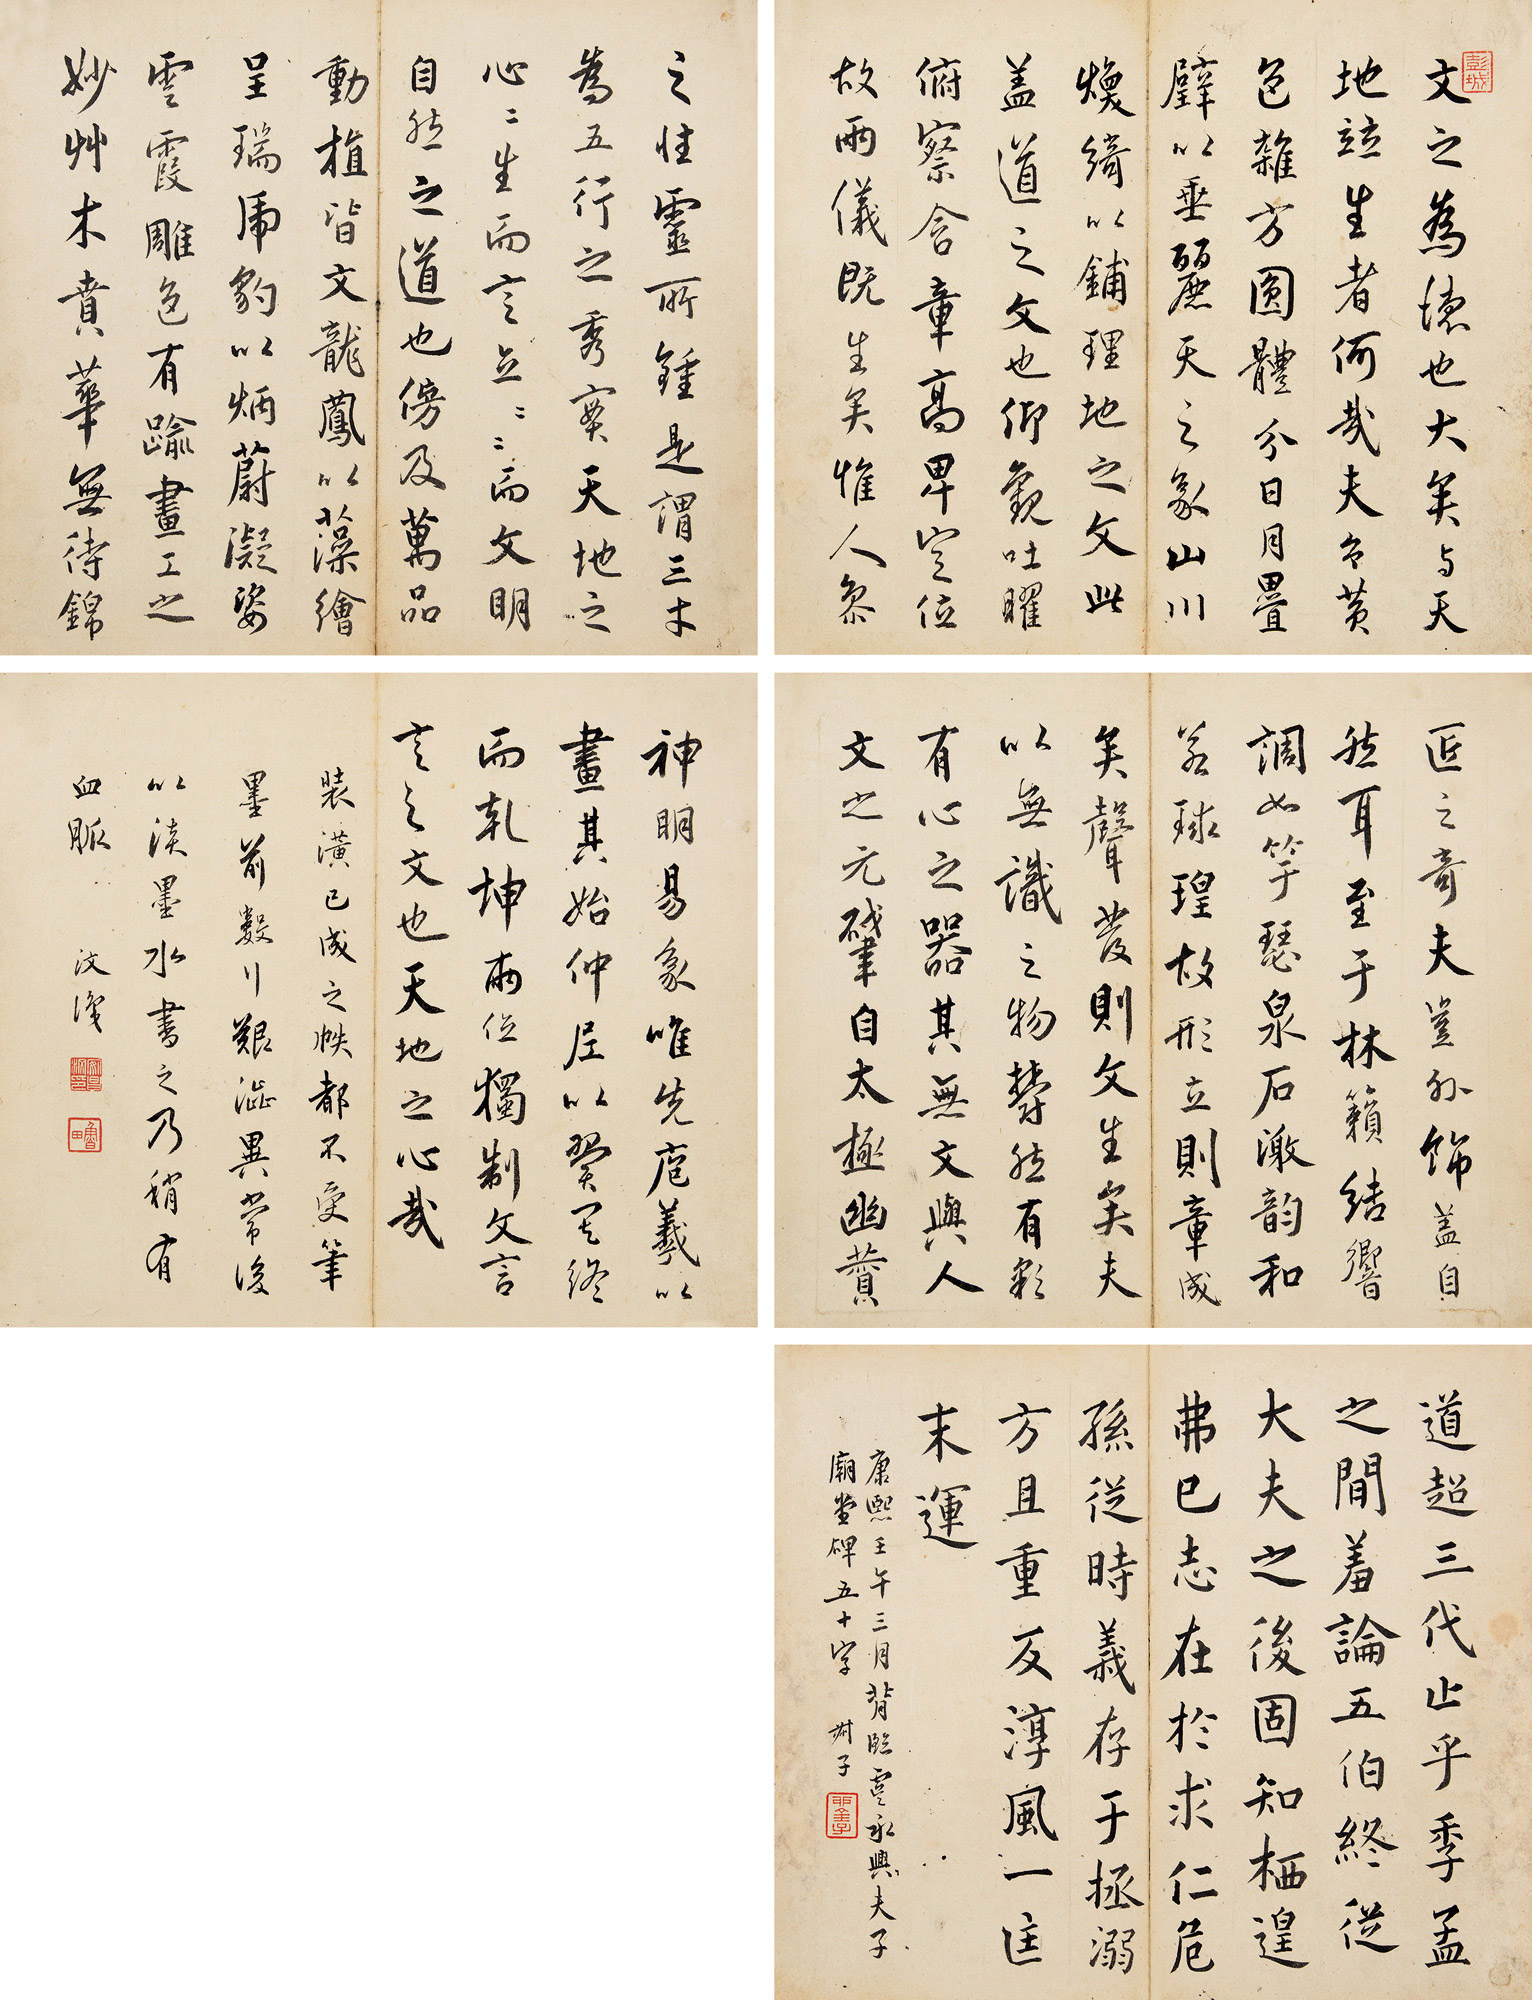 彭城
文之為德也大矣与天
地竝生者何哉夫玄黄
色雜方圓體分日月疊
璧以垂麗天之象山川
煥綺以鋪理地之文此
蓋道之文也仰觀吐曜
俯察含章高卑定位
故兩儀既生矣惟人參
之性靈所鍾是謂三才
為五行之秀實天地之
心〻生而言立〻〻而文明
自然之道也傍及萬品
動植皆文龍鳳以藻繪
呈瑞虎豹以炳蔚凝姿
雲霞雕色有踰畫工之
妙艸木賁華無待錦
匠之奇夫豈外飾蓋自
然耳至于林籟結響
調如竽瑟泉石激韵和
若球瑝故形立則章成
矣聲發則文生矣夫
以無識之物鬱然有彩
有心之器其無文與人
文之元肇自太極幽贊
神明易象唯先庖羲以
畫其始仲尼以翼其終
而乾坤兩位獨制文言
言之文也天地之心哉
裝潢已成之帙都不受筆
墨前數行艱澁異常後
以淡墨水書之乃稍有
血脈 汶識
魯田
道超三代止乎季孟
之間羞論五伯終從
大夫之後固知栖遑
弗已志在於求仁危
孫從時義存于拯溺
方且重反淳風一匡
末運
康熙壬午三月背臨虞永興夫子
廟堂碑五十字 謝子